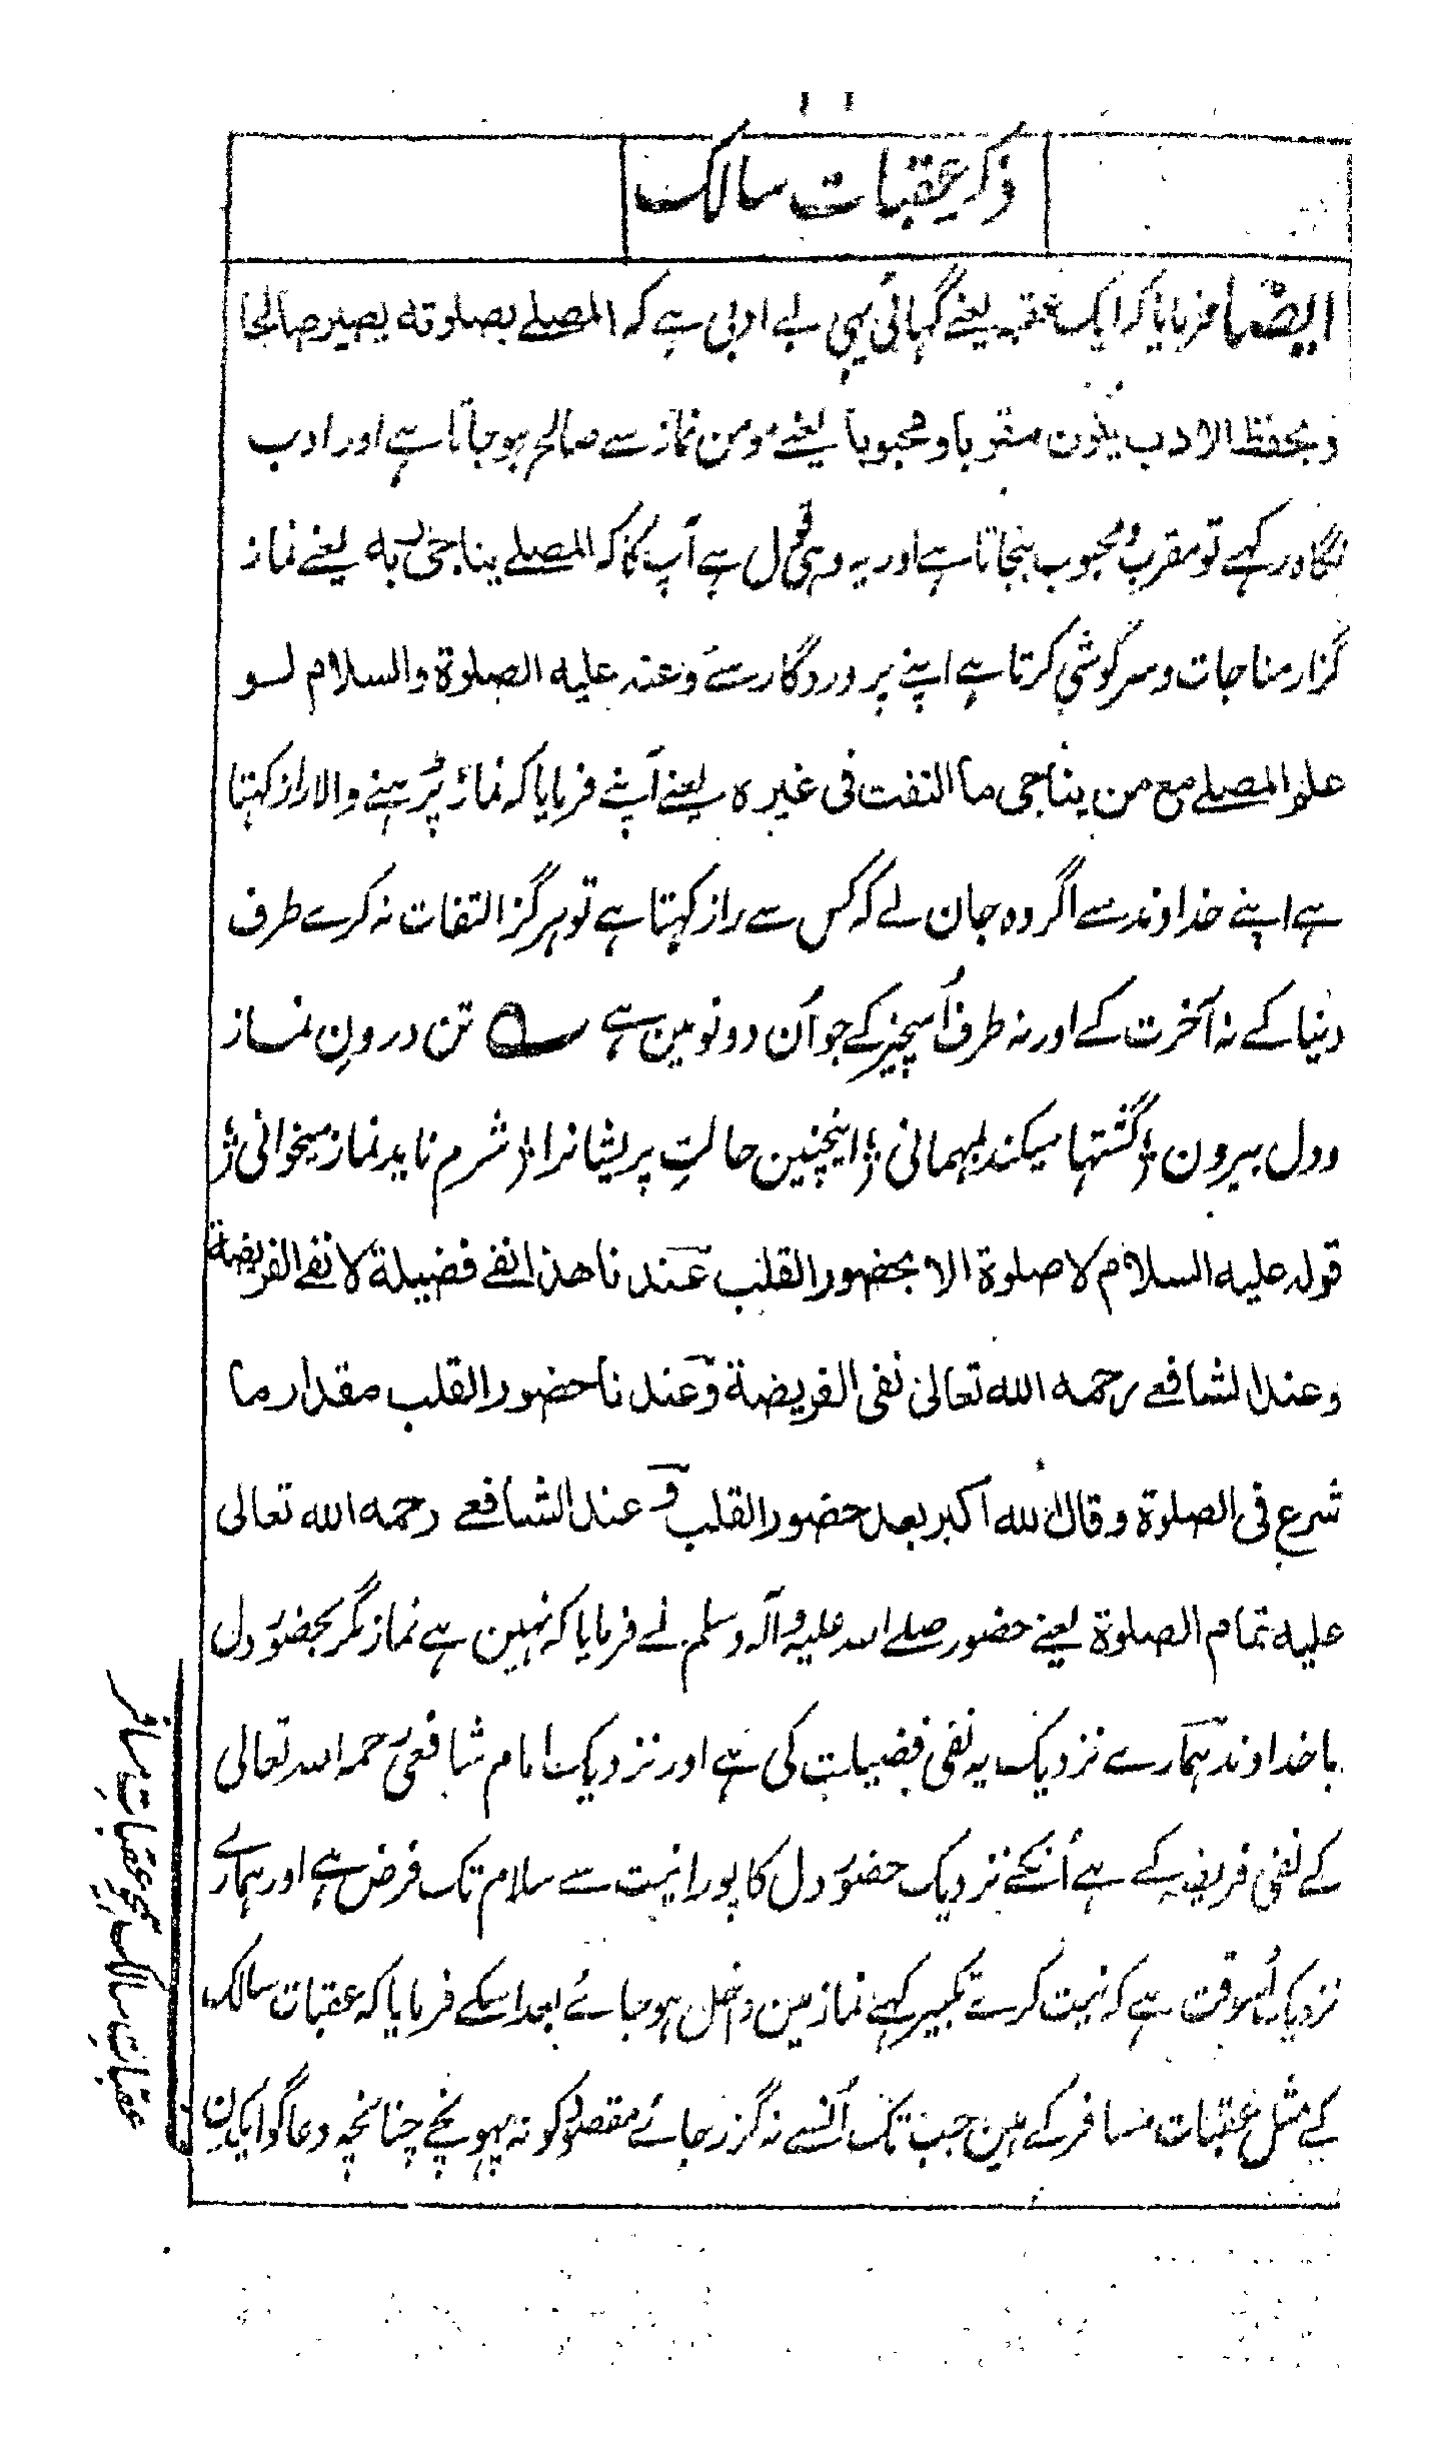 ۱۱
ذکر عقبات سالک
ایضاً فرمایا کہ ایک عقبہ یعنے گہاٹی یہی بے ادبی ہے کہ المصلے بصلوته يصير صالحا
وبحفظ الادب يكون مقربا ومحبوبا یعنے مومن نماز سے صالح ہو جاتا ہے اور ادب
نگاہ رکہے تو مقرب و محبوب بنجاتا ہے اور یہ وہی قول ہے آپ کا کہ المصلے يناجى ربه یعنے نماز
گزار مناجات و سرگوشی کرتا ہے اپنے پروردگار سے وعنه عليه الصلوة والسلام لو
علم المصلے مع من يناجى ما التفت فى غيره یعنے آپنے فرمایا کہ نماز پڑہنے والا راز کہتا
ہے اپنے خداوند سے اگر وہ جان لے کہ کس سے راز کہتا ہے تو ہرگز التفات نہ کرے طرف
دنیا کے نہ آخرت کے اور نہ طرف اُسچیز کے جو اُن دونومین ہے ؎ تن درونِ نماز
و دل بیرون ؛ گشتہا میکند بمہمانی ؛ اینچنین حالتِ پریشانرا ؛ شرم ناید نماز میخوانی ؛
قوله عليه السلام لا صلوة الا بحضور القلب عندنا هذا نفے فضيلة لا نفے الفريضة
وعند الشافعے رحمه الله تعالى نفى الفريضة وعندنا حضور القلب مقدار ما
شرع فى الصلوة وقال الله اكبر بعد حضور القلب وعند الشافعے رحمه الله تعالى
عليه تمام الصلوة یعنے حضور صلے اللہ علیہ وآلہ وسلم نے فرمایا کہ نہین ہے نماز مگر بحضور دل
با خداوند ہمارے نزدیک یہ نفی فضیلت کی ہے اور نزدیک امام شافعی رحمہ اللہ تعالی
کے نفی فریضہ کے ہے اُنکے نزدیک حضور دل کا پورا نیت سے سلام تک فرض ہے اور ہمارے
نزدیک اُسوقت ہے کہ نیت کرے تکبیر کہے نماز مین داخل ہو جائے بعد اسکے فرمایا کہ عقبات سالک
کے مثل عقبات مسافر کے ہین جب تک اُنسے نہ گزر جائے مقصود کو نہ پہونچے چنانچہ دعا گو ایکدن
عقباتِ سالک ہمچو عقباتِ مسافر